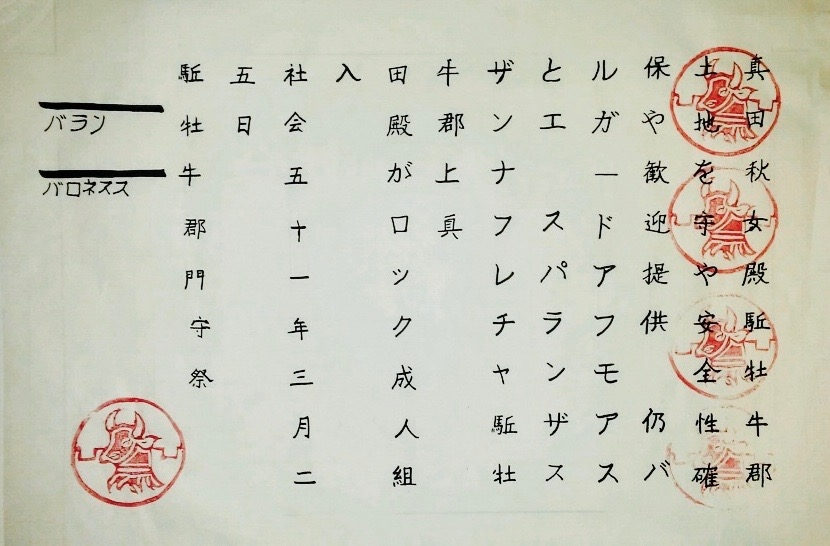 真田秋女殿駈牡牛郡
土地を守や安全性確
保や歓迎提供 仍バ
ルガードアフモアス
とエ スパランザス
ザンナフレチヤ駈牡
牛郡上真
田殿がロック成人組
入
社会五十一年三月二
五日
駈牡牛郡門守祭
バラン
バロネスス